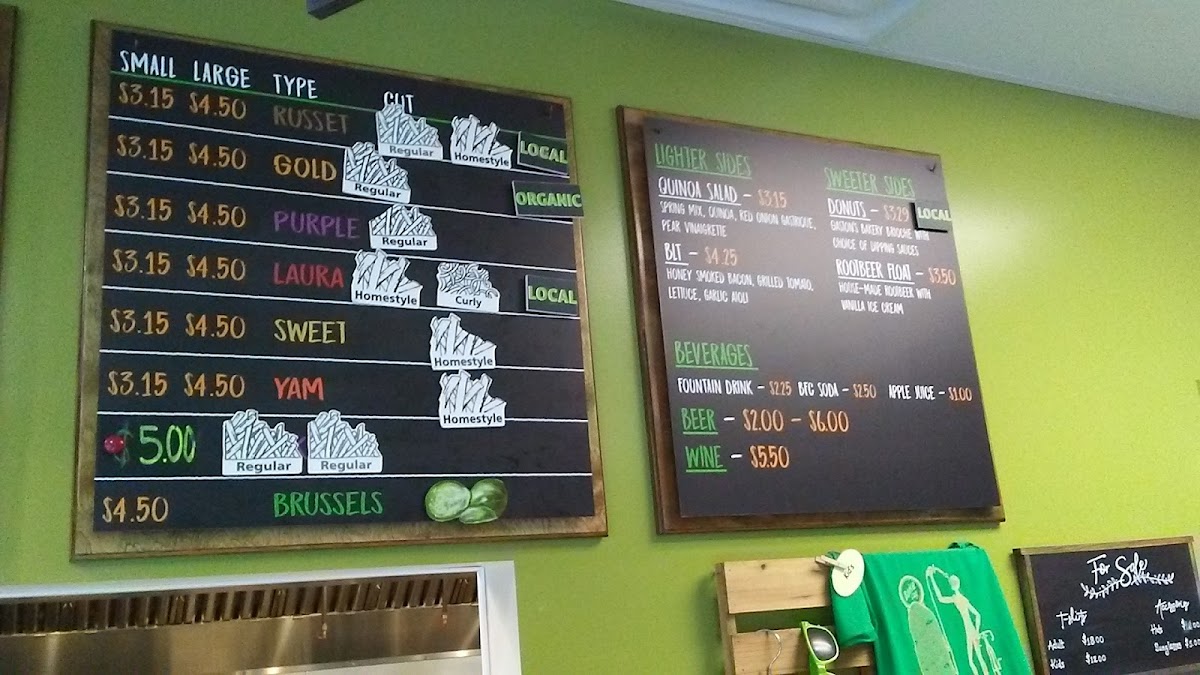 SMALL LARGE TYPE CUT
$3.15 $4.50 RUSSET Regular Homestyle LOCAL
$3.15 $4.50 GOLD Regular ORGANIC
$3.15 $4.50 PURPLE Regular
$3.15 $4.50 LAURA Homestyle Curly LOCAL
$3.15 $4.50 SWEET Homestyle
$3.15 $4.50 YAM Homestyle
$5.00 Regular Regular
$4.50 BRUSSELS
LIGHTER SIDES
QUINOA SALAD - $3.15
SPRING MIX, QUINOA, RED ONION GASTRIQUE,
PEAR VINAIGRETTE
BLT - $4.25
HONEY SMOKED BACON, GRILLED TOMATO,
LETTUCE, GARLIC AIOLI
SWEETER SIDES
DONUTS - $3.29 LOCAL
GASTON'S BAKERY BRIOCHE WITH
CHOICE OF DIPPING SAUCES
ROOTBEER FLOAT - $3.50
HOUSE-MADE ROOTBEER WITH
VANILLA ICE CREAM
BEVERAGES
FOUNTAIN DRINK - $2.25 BFG SODA - $2.50 APPLE JUICE - $1.00
BEER - $2.00 - $6.00
WINE - $5.50
For Sale
T-shirts
Adult $18.00
Kids $12.00
Hats
Sunglasses